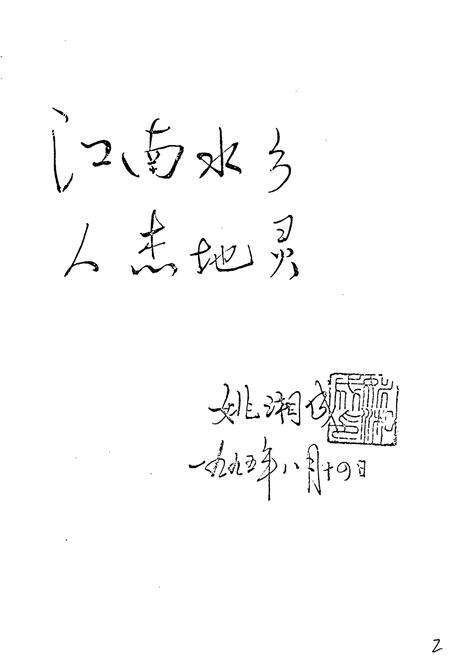 江南水乡
人杰地灵
姚湘成
一九九五年八月十四日
2